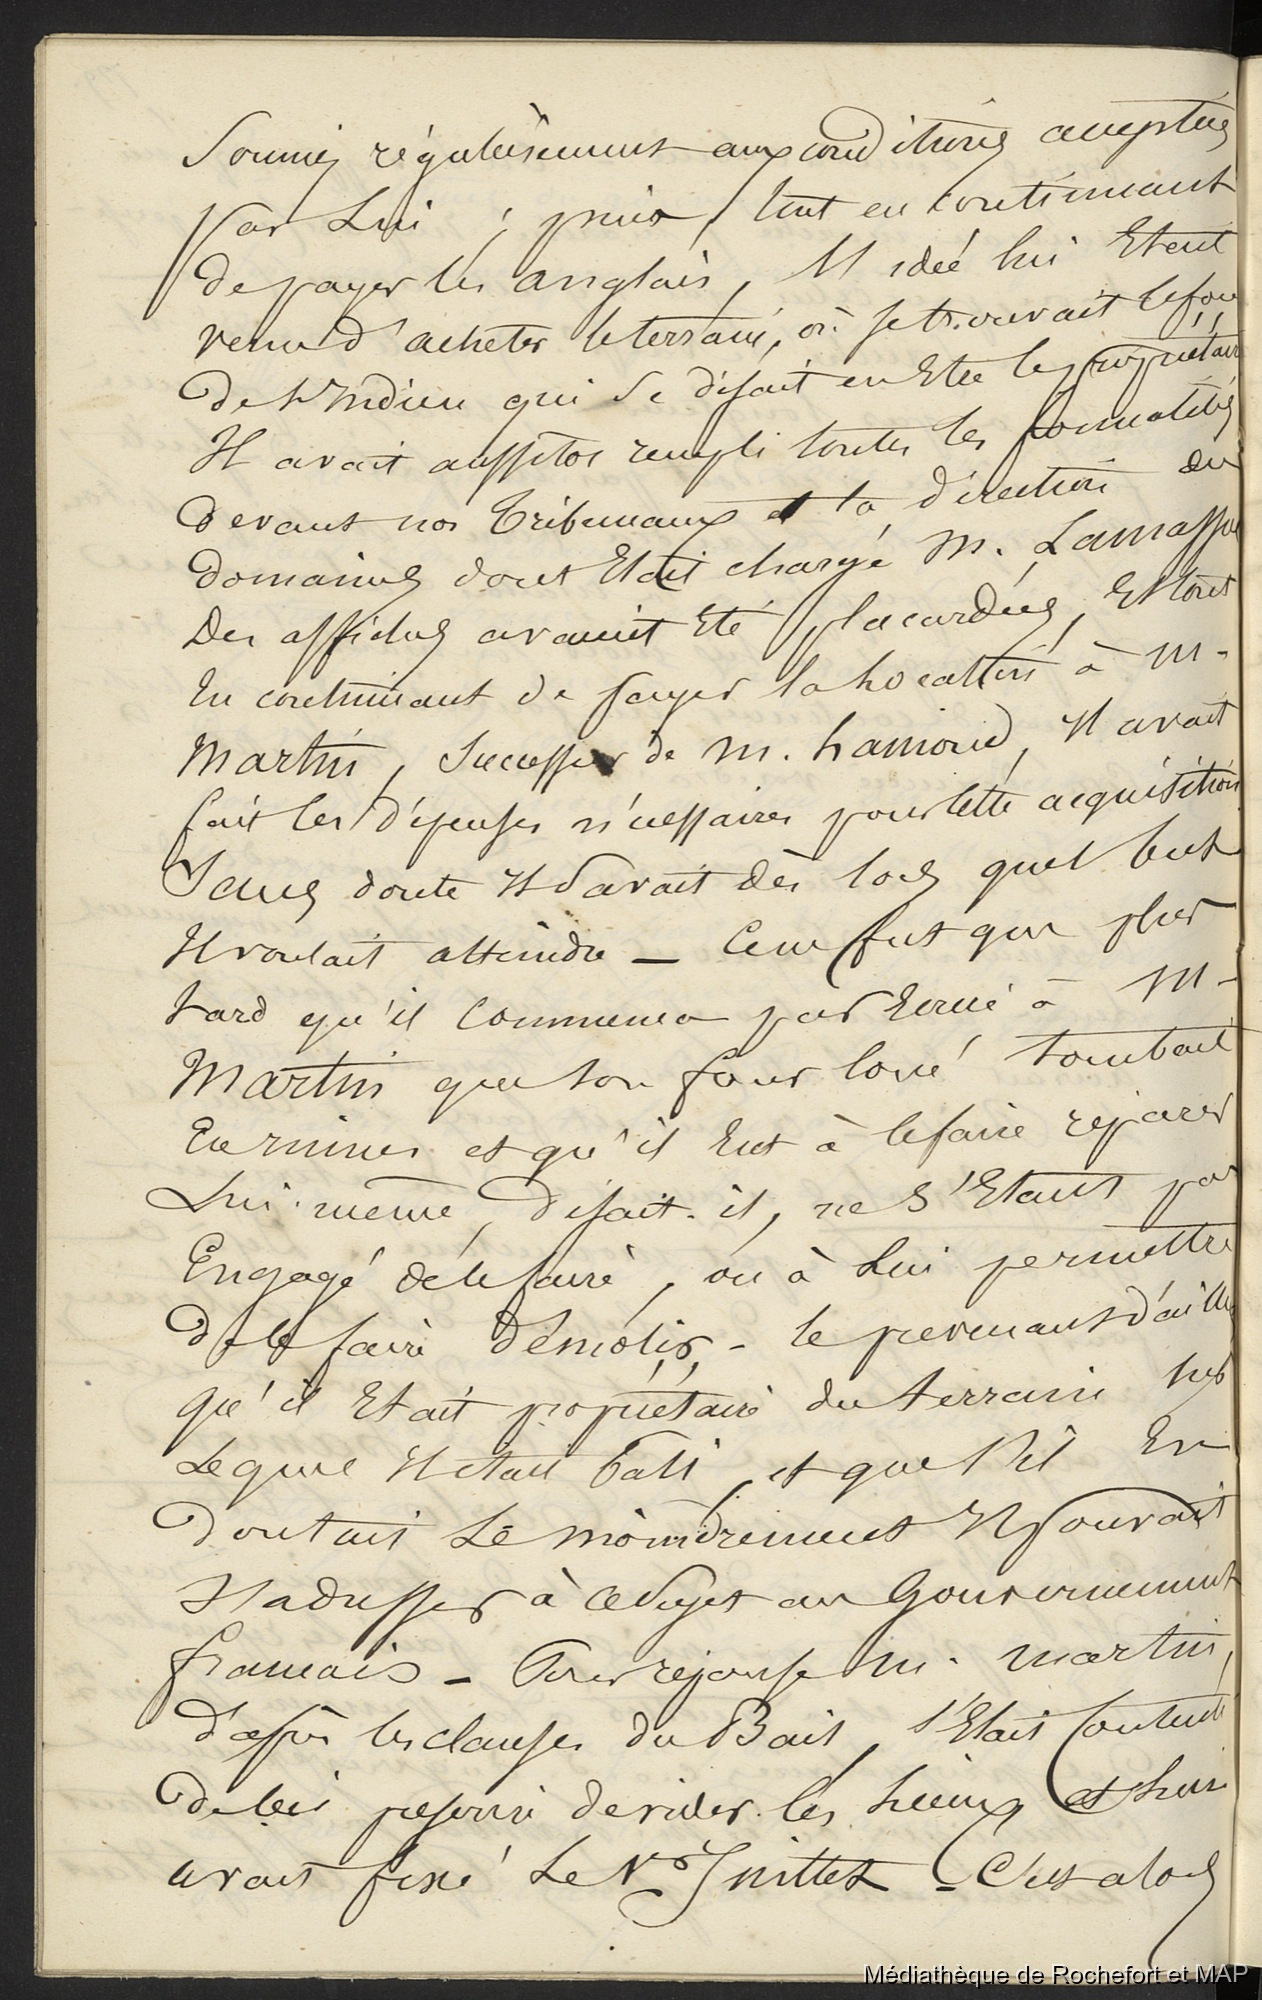 Soumis régulièrement aux conditions acceptées
par Lui ; puis, tout en continuant
de payer les anglais, l'idée lui Etant
venu d'acheter le terrain, où se trouvait le four
de l'Indien qui se disait en Etre le propriétaire
Il avait aussitot rempli toutes les formalités
devant nos Tribunaux et la direction du
Domaines dont Etait chargé M.
Des affiches avaient Eté placardées, Et tout
En continuant de payer la Location à M.
Martin, Successeur de M. hamond, Il avait
fait les dépenses nécessaires pour cette acquisition
Sans doute Il Savait dès lors quel but
Il voulait atteindre _ Ce ne fut que plus
tard qu'il commença par Ecrire à M.
Martin que son four loué tombait
En ruines et qu'il Eut à le faire réparer
Lui-même, disait-il, ne S'Etant pas
Engagé de le faire, ou à Lui permettre
De le faire démolir, - le prevenant d'ailleurs
qu'il Etait propriétaire du terrain sur
Lequel Il était bâti, et que S'il En
Doutait Le moindrement Il pouvait
S'adresser à ce Sujet au Gouvernement
francais _ Pour réponse M. Martin,
d'après les clauses du Bail, s'Etait contenté
de lui prescrire de vider les Lieux et Lui
avait fixé Le 1er Juillet _ C'est alors
Médiathèque de Rochefort et MAP